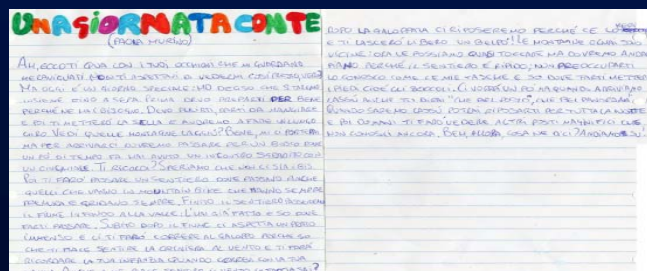 UNA GIORNATA CON TE
(PAOLA MURINO)
AH, ECCOTI QUA CON I TUOI OCCHIONI CHE MI GUARDANO
MERAVIGLIATI. NON TI ASPETTAVI DI VEDERMI COSÌ PRESTO, VERO?
MA OGGI È UN GIORNO SPECIALE: HO DECISO CHE STAREMO
INSIEME FINO A SERA. PRIMA DEVO PER BENE
PERCHÉ NE HAI BISOGNO. DEVO PULIRTI, DARTI DA MANGIARE
E POI TI METTERÒ LA SELLA E ANDREMO A FARE UN LUNGO
GIRO. VEDI QUELLE MONTAGNE LAGGIÙ? BENE, MI CI PORTERAI
MA PER ARRIVARCI DOVREMO PASSARE PER UN BOSCO DOVE
UN PÒ DI TEMPO FA HAI AVUTO UN INCONTRO CON
UN CINGHIALE. TI RICORDI? SPERIAMO CHE NON CI SIA
POI TI FARÒ PASSARE UN SENTIERO DOVE PASSANO ANCHE
QUELLI CHE VANNO IN MOUNTAIN BIKE CHE HANNO SEMPRE
PREMURA E GRIDANO SEMPRE. FINITO IL SENTIERO
IL FIUME IN FONDO ALLA VALLE: L'HAI GIÀ FATTO E SO DOVE
FARTI PASSARE. SUBITO DOPO IL FIUME CI ASPETTA UN PRATO
IMMENSO E LÌ TI FARÒ CORRERE AL GALOPPO PERCHÉ SO
CHE TI PIACE SENTIRE LA CRINIERA AL VENTO E TI FARÀ
RICORDARE LA TUA INFANZIA QUANDO CORREVI CON LA TUA
DOPO LA GALOPPATA CI RIPOSEREMO PERCHÉ CE LO
E TI LASCERÒ LIBERO UN BEL PÒ! LE MONTAGNE ORMAI SONO
VICINE: ORA LE POSSIAMO QUASI TOCCARE MA DOVREMO ANDARE
PIANO PERCHÉ IL SENTIERO È RIPIDO; NON PREOCCUPARTI
LO CONOSCO COME LE MIE TASCHE E SO DOVE FARTI METTERE
I PIEDI CIOÈ GLI ZOCCOLI. CI VORRÀ UN PÒ MA QUANDO ARRIVIAMO
DIRAI ANCHE TU DIRAI "CHE BEI POSTI, CHE BEI PANORAMI"
QUANDO SAREMO LASSÙ, POTRAI RIPOSARTI PER TUTTA LA NOTTE
E POI DOMANI TI FARÒ VEDERE ALTRI POSTI MAGNIFICI CHE
NON CONOSCI ANCORA. BEH, ALLORA COSA NE DICI? ANDIAMO SU!